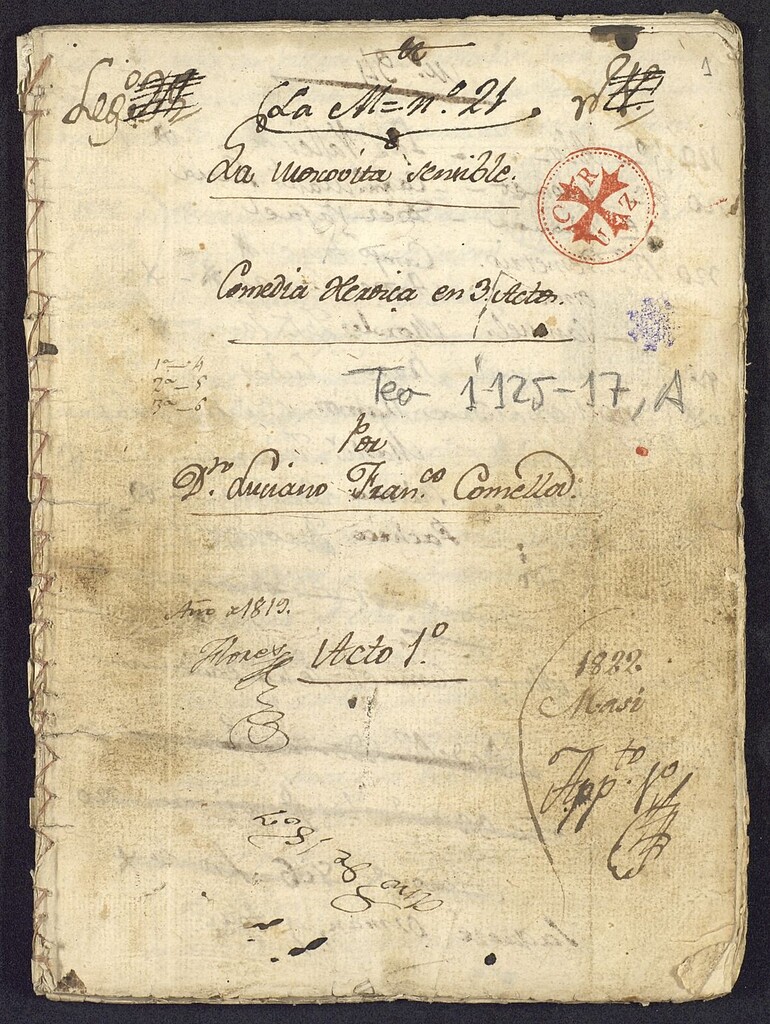 1
Leg.º
La M= nº. 21
La moscovita sensible.
CRUZ
Comedia Heroica en 3. Actos.
1ª - 4
2ª - 5
3ª - 6
Tea 1-125-17, A
Por
Dn. Luciano Fran.co Comella.
Año d 1819.
Flores
Acto 1º.
1822.
Masi
App.to 1º
Año de 1807